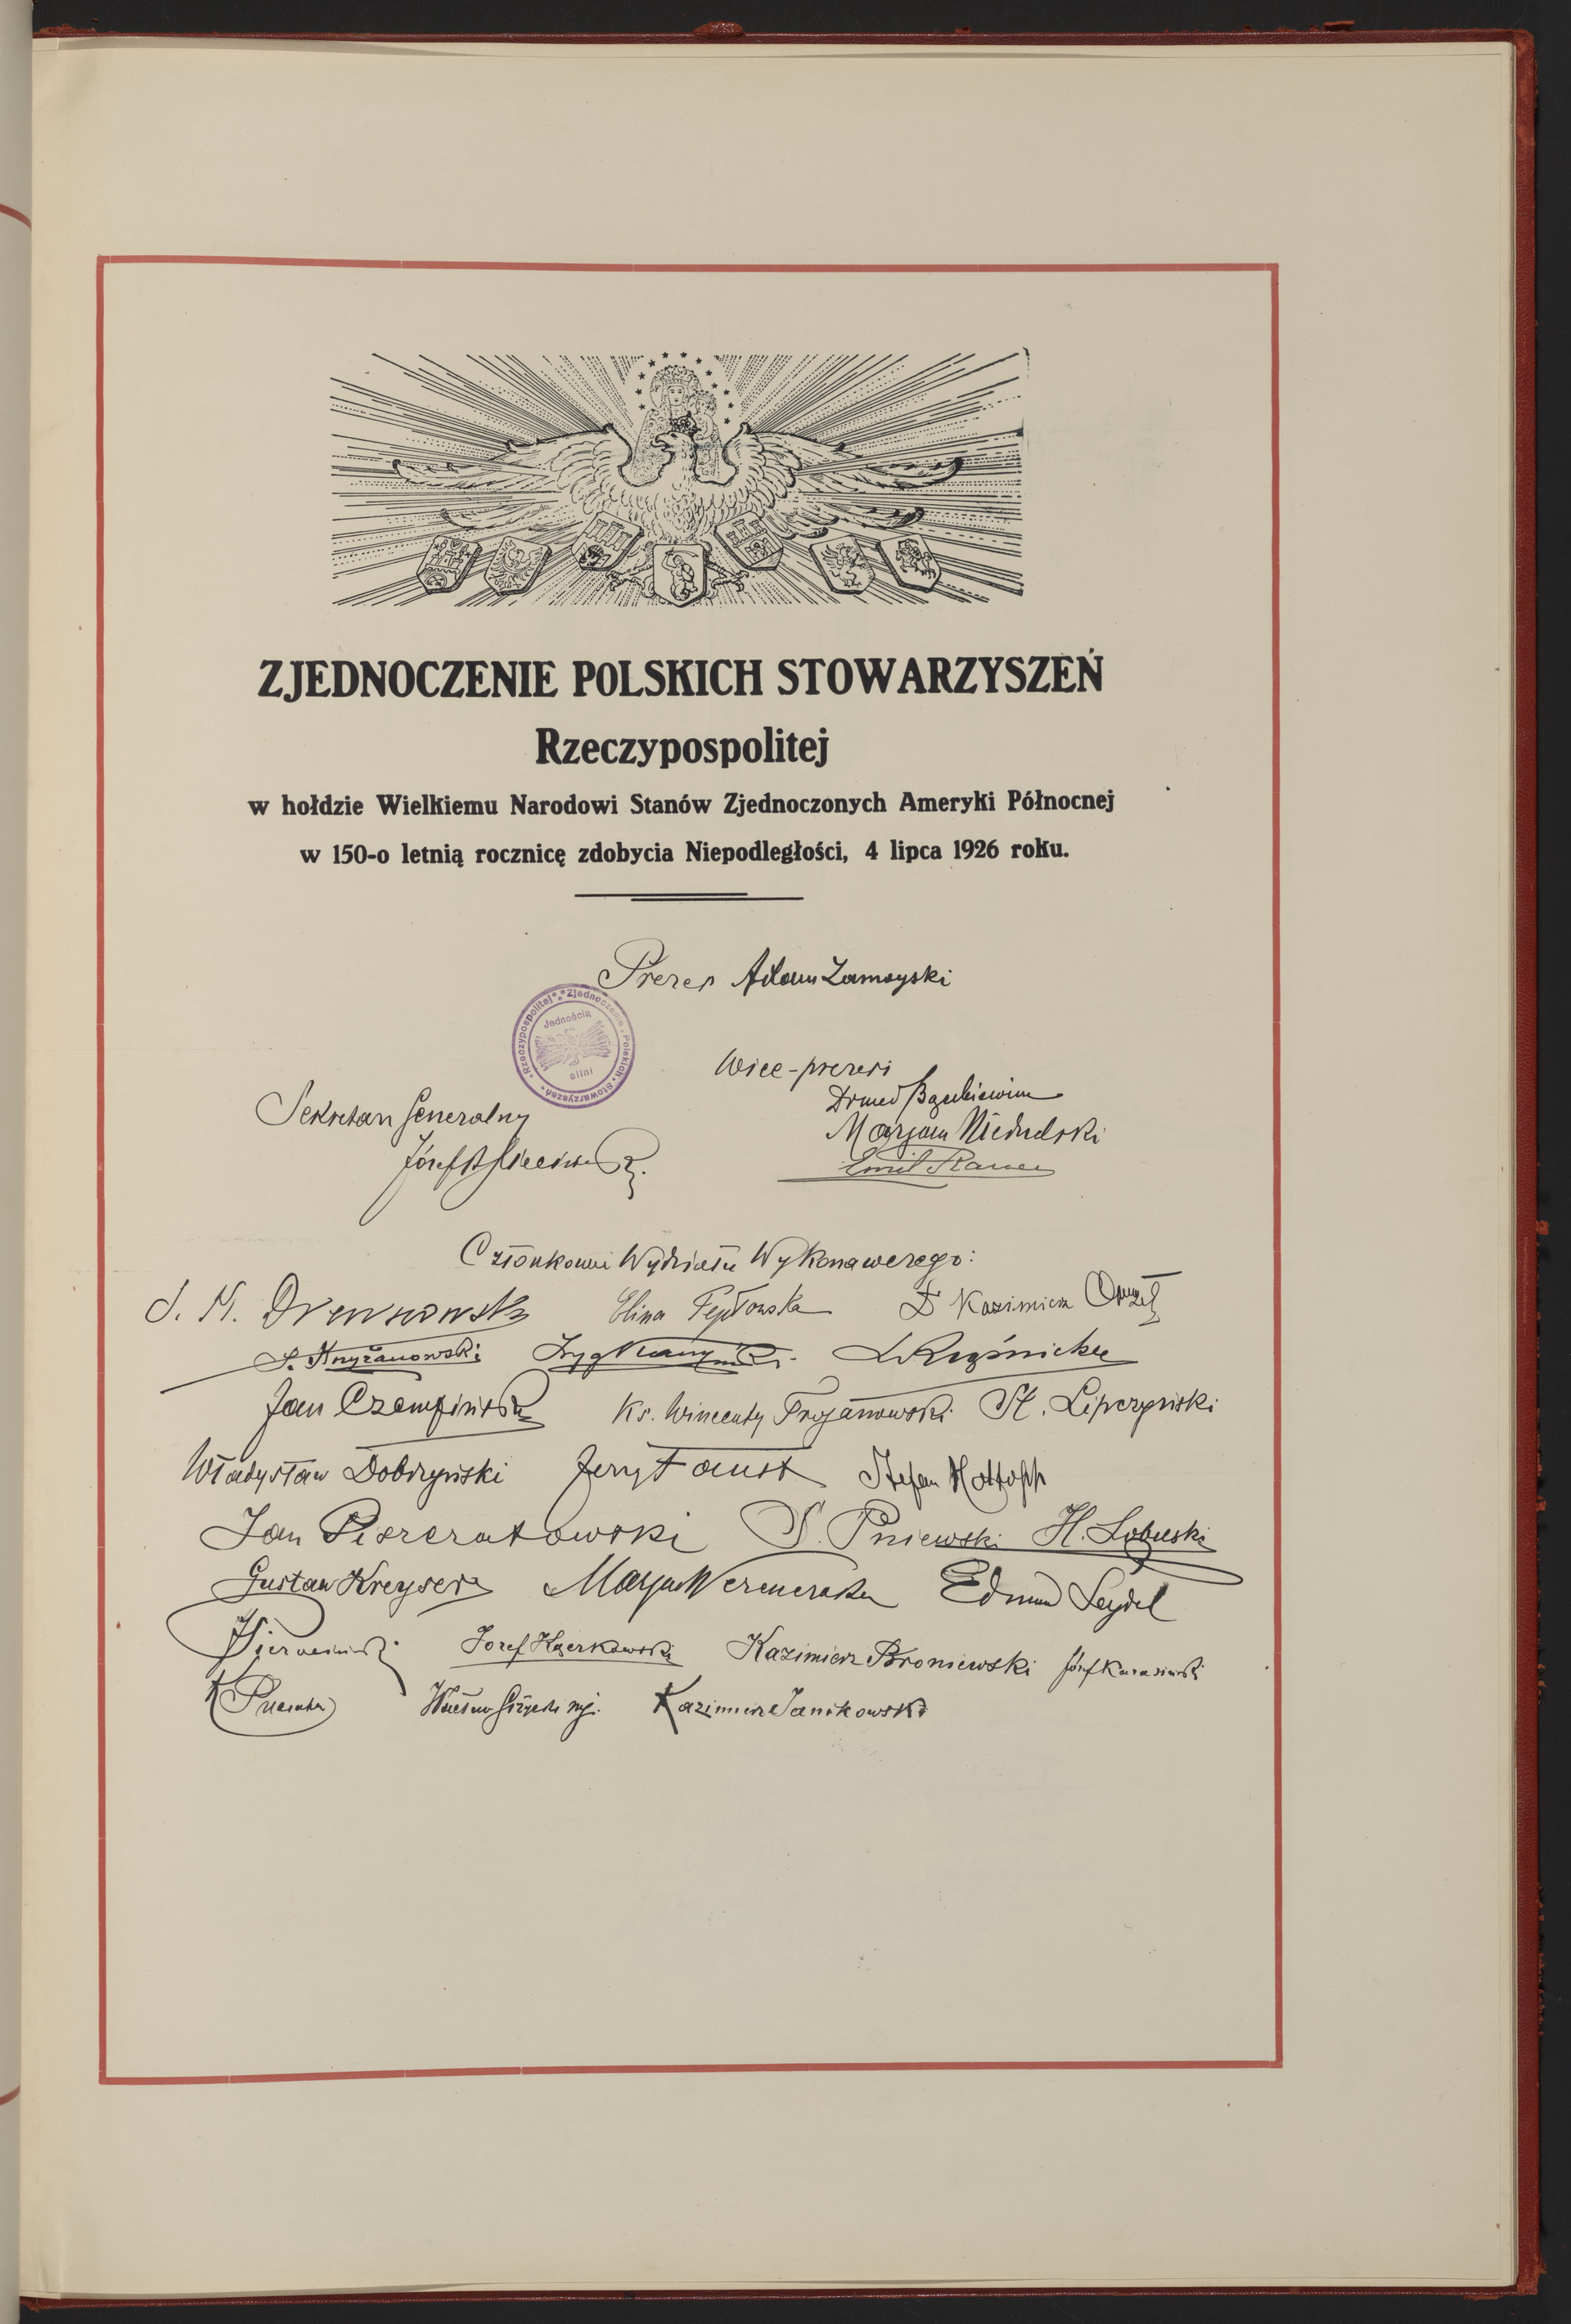 ZJEDNOCZENIE POLSKICH STOWARZYSZEŃ
Rzeczypospolitej
w hołdzie Wielkiemu Narodowi Stanów Zjednoczonych Ameryki Północnej
w 150-o letnią rocznicę zdobycia Niepodległości, 4 lipca 1926 roku.
Prezes Adam Zamoyski
Zjednoczenie • Polskich • Stowarzyszeń • Rzeczypospolitej
Jednością
silni
Wice-prezesi
Sekretarz Generalny
Marjan Niedzielski
Józef
Emil
Członkowie Wydziału Wykonawczego:
S. M. Drewnowski Elina Pepłowska Dr Kazimierz
S. Krzyżanowski
Jan Czempiński Ks. Wincenty Trojanowski St. Lipczyński
Władysław Dobrzyński Jerzy Faust Stefan
Jan Piszczatowski S. Pniewski H. Łobuski
Gustaw Kreyser Marja Wernerska Edmund Seydel
Józef Kazimierz Broniewski Józef Karasiński
Wacław Kazimierz Janikowski